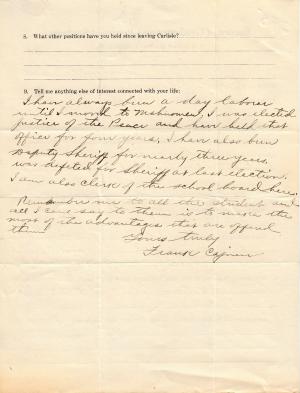 8. What other positions have you held since leaving Carlisle?
9. Tell me anything else of interest connected with your life:
I have always been a day laborer
until I moved to Mahnomen, I was elected
justice of the Peace and have held that
office for four years, I have also been
Deputy Sheriff for nearly three years,
was defeted for Sheriff at last election.
I am also clerk of the school board here.
Remember me to all the student and
all I can say to them is to make the
most of the advantages that are offered
them
Yours truly
Frank